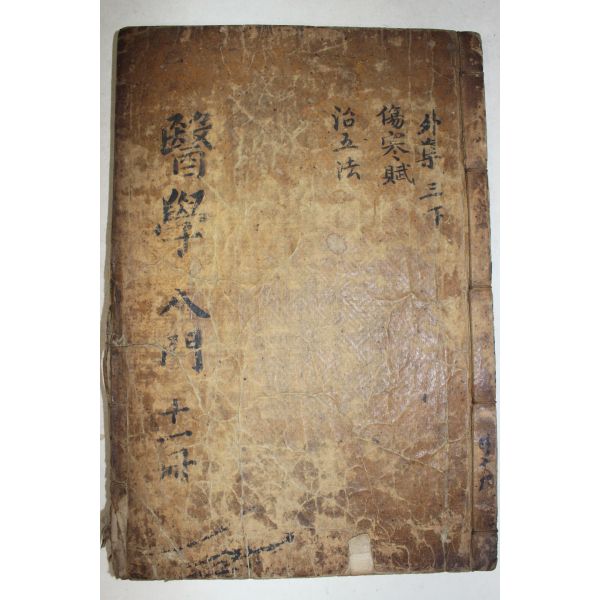 外集 三下
傷寒賦
治五法
醫學入門 十一冊